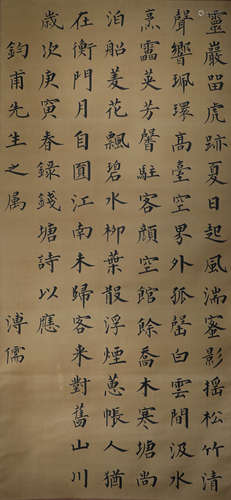 靈巖留虎跡夏日起風湍蜜影搖松竹清
聲響珮環高臺空界外孤磬白雲間汲水
烹靈茣芳馨駐客顏空館餘喬木寒塘尚
泊船菱花飄碧水柳葉散浮煙蕙帳人猶
在衡門月自圓江南未歸客來對舊山川
歲次庚寅春錄錢塘詩以應
鈞甫先生之属 溥儒